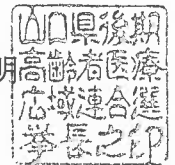 山口県後期
明高齢者医療
広域連合選
挙長之印